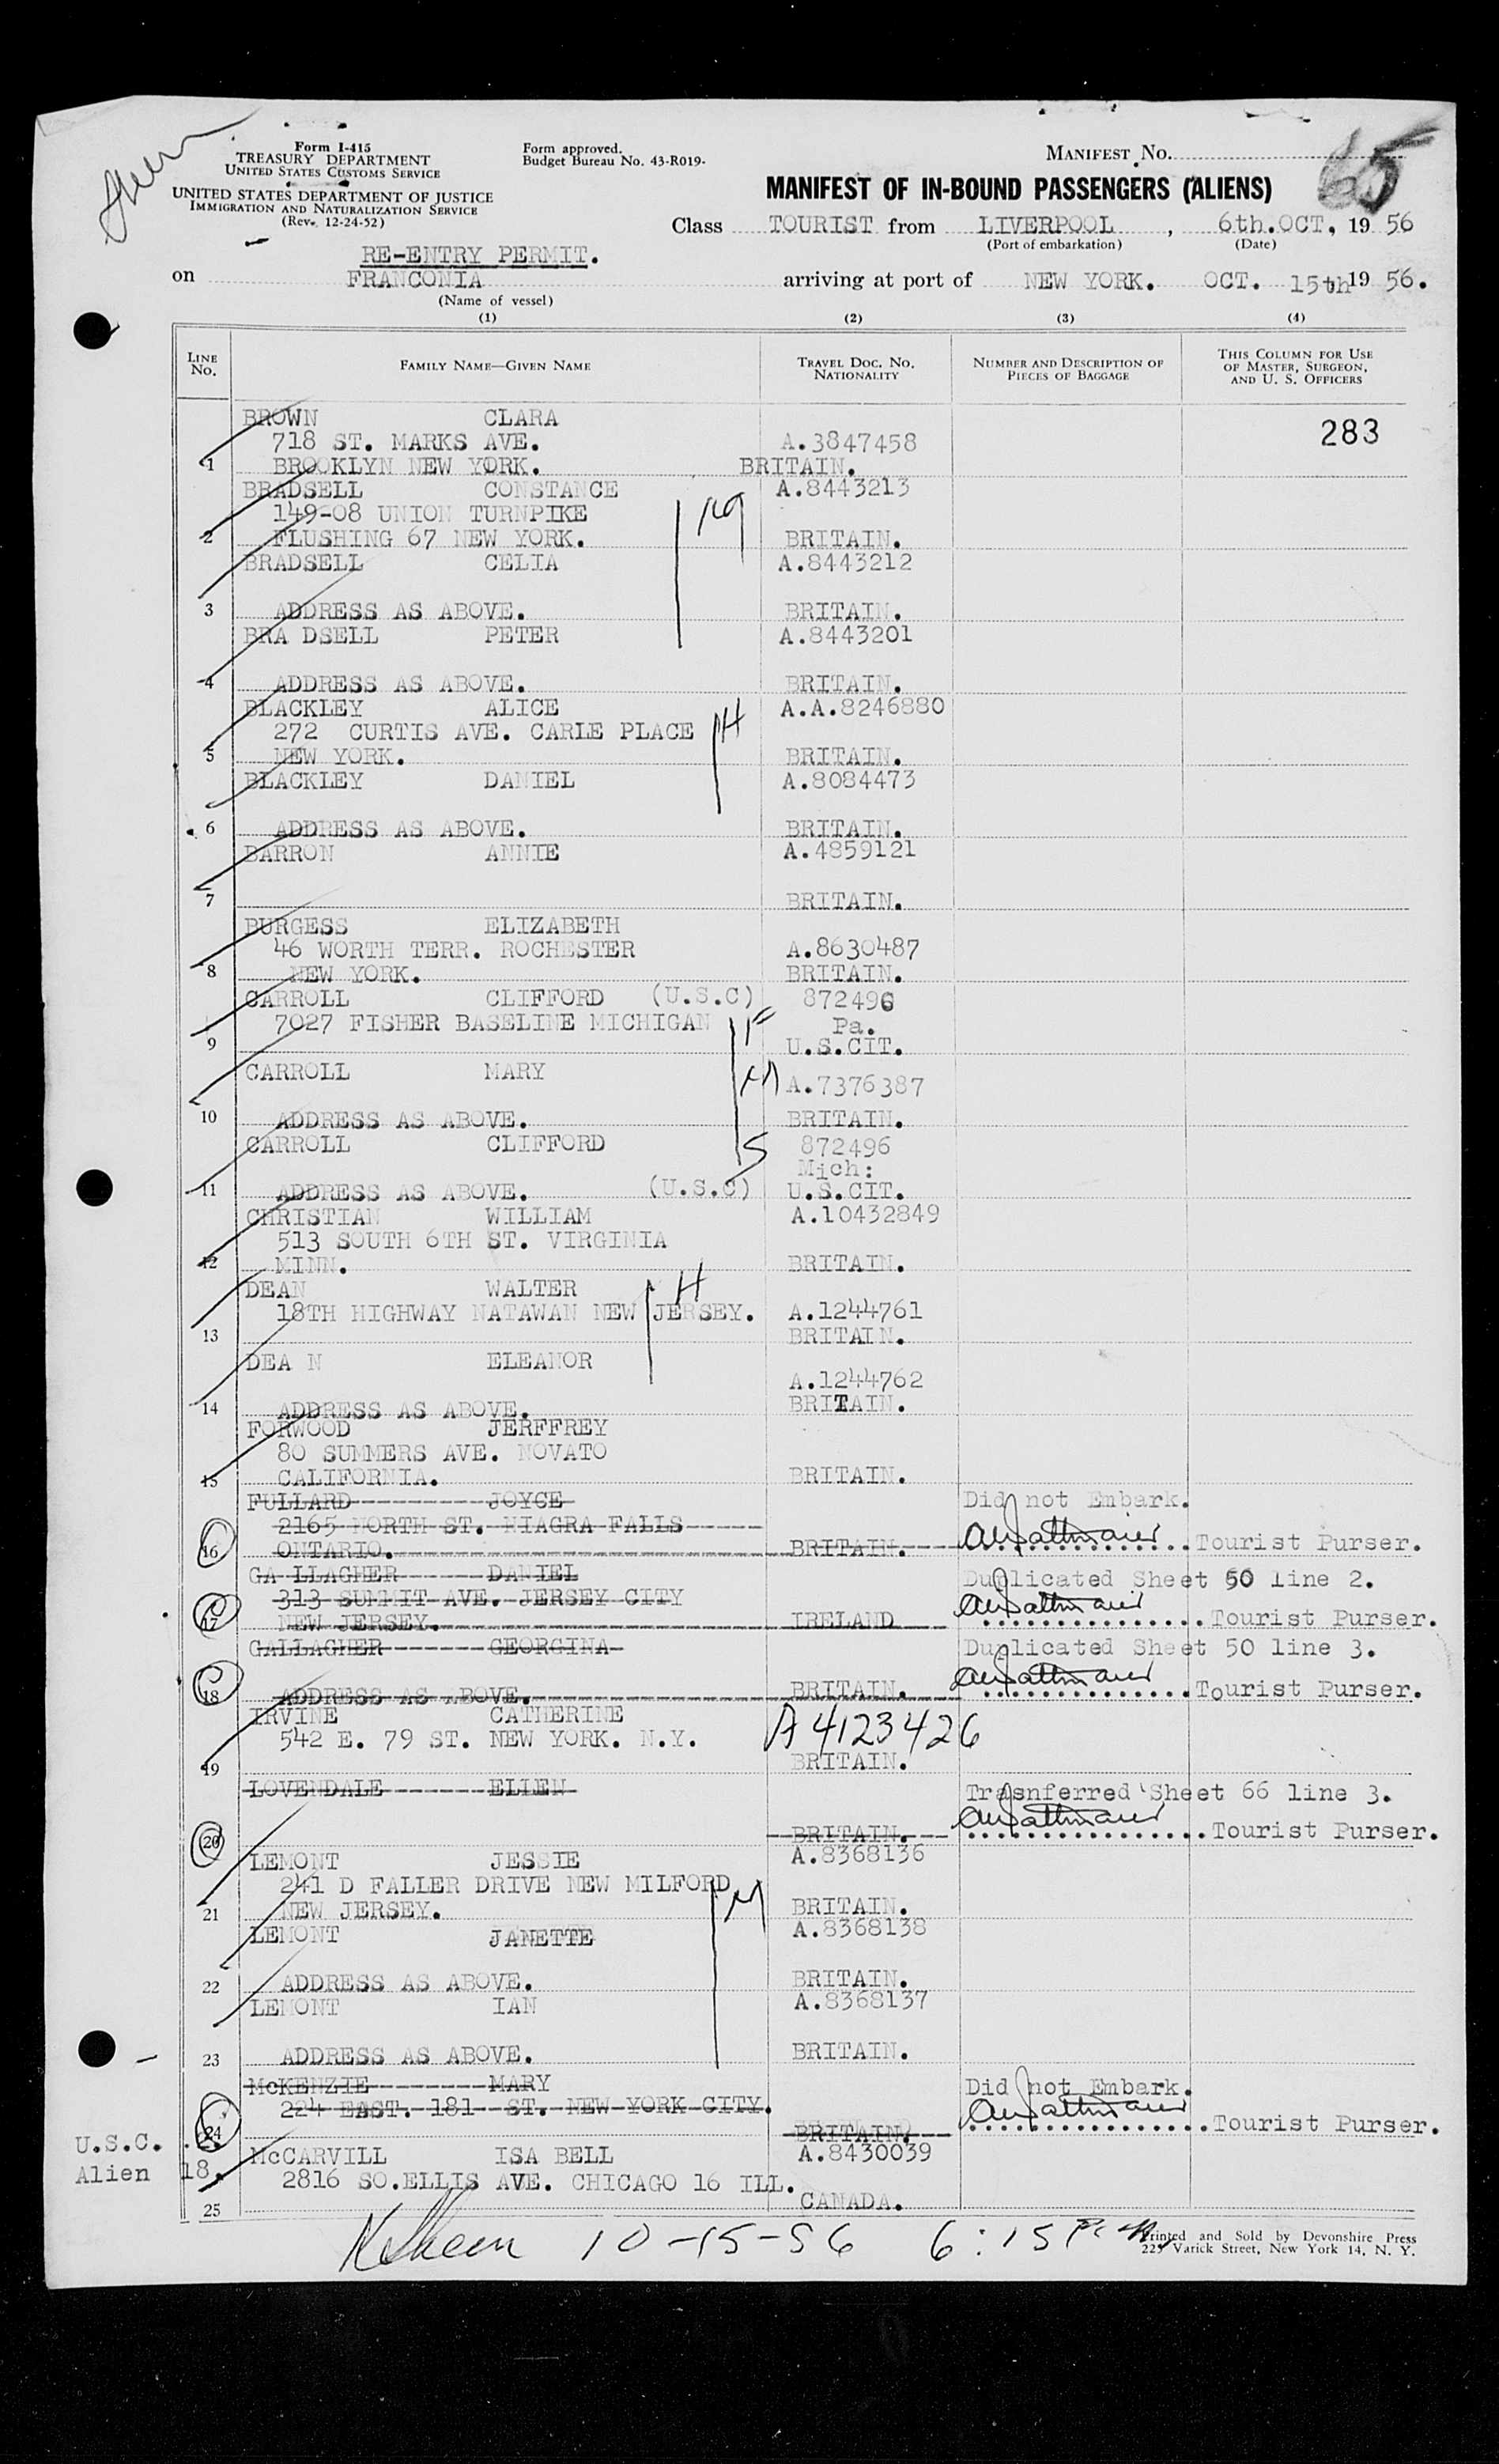 Form I-415
TREASURY DEPARTMENT
UNITED STATES CUSTOMS SERVICE
UNITED STATES DEPARTMENT OF JUSTICE
IMMIGRATION AND NATURALIZATION SERVICE
(Rev. 12-24-52)
Form approved.
Budget Bureau No. 43-R019-
MANIFEST No. 65
MANIFEST OF IN-BOUND PASSENGERS (ALIENS)
Class TOURIST from LIVERPOOL, 6th.OCT, 19 56
(Port of embarkation) (Date)
RE-ENTRY PERMIT.
on FRANCONIA arriving at port of NEW YORK. OCT. 15th 19 56.
(Name of vessel)
(1) (2) (3) (4)
LINE No. FAMILY NAME—GIVEN NAME TRAVEL DOC. NO. NATIONALITY NUMBER AND DESCRIPTION OF PIECES OF BAGGAGE THIS COLUMN FOR USE OF MASTER, SURGEON, AND U. S. OFFICERS
BROWN CLARA 283
718 ST. MARKS AVE. A.3847458
1 BROOKLYN NEW YORK. BRITAIN.
BRADSELL CONSTANCE A.8443213
149-08 UNION TURNPIKE
2 FLUSHING 67 NEW YORK. BRITAIN.
BRADSELL CELIA A.8443212
3 ADDRESS AS ABOVE. BRITAIN.
BRA DSELL PETER A.8443201
4 ADDRESS AS ABOVE. BRITAIN.
BLACKLEY ALICE A.A.8246880
272 CURTIS AVE. CARLE PLACE H
5 NEW YORK. BRITAIN.
BLACKLEY DANIEL A.8084473
6 ADDRESS AS ABOVE. BRITAIN.
BARRON ANNIE A.4859121
7 BRITAIN.
BURGESS ELIZABETH
46 WORTH TERR. ROCHESTER A.8630487
8 NEW YORK. BRITAIN.
CARROLL CLIFFORD (U.S.C) 872496
7027 FISHER BASELINE MICHIGAN F Pa.
9 U.S.CIT.
CARROLL MARY M A.7376387
10 ADDRESS AS ABOVE. BRITAIN.
CARROLL CLIFFORD S 872496
Mich:
11 ADDRESS AS ABOVE. (U.S.C) U.S.CIT.
CHRISTIAN WILLIAM A.10432849
513 SOUTH 6TH ST. VIRGINIA
12 MINN. BRITAIN.
DEAN WALTER H
18TH HIGHWAY NATAWAN NEW JERSEY. A.1244761
13 BRITAIN.
DEA N ELEANOR
A.1244762
14 ADDRESS AS ABOVE. BRITAIN.
FORWOOD JERFFREY
80 SUMMERS AVE. NOVATO
15 CALIFORNIA. BRITAIN.
FULLARD JOYCE Did not Embark.
2165 NORTH ST. NIAGRA FALLS
16 ONTARIO. BRITAIN. Tourist Purser.
GA LLAGHER DANIEL Duplicated Sheet 50 line 2.
313 SUMMIT AVE. JERSEY CITY
17 NEW JERSEY. IRELAND Tourist Purser.
GALLAGHER GEORGINA Duplicated Sheet 50 line 3.
18 ADDRESS AS ABOVE. BRITAIN. Tourist Purser.
IRVINE CATHERINE
542 E. 79 ST. NEW YORK. N.Y. A 4123426
19 BRITAIN.
LOVENDALE ELLEN Trasnferred Sheet 66 line 3.
20 BRITAIN. Tourist Purser.
LEMONT JESSIE A.8368136
241 D FALLER DRIVE NEW MILFORD M
21 NEW JERSEY. BRITAIN.
LEMONT JANETTE A.8368138
22 ADDRESS AS ABOVE. BRITAIN.
LEMONT IAN A.8368137
23 ADDRESS AS ABOVE. BRITAIN.
McKENZIE MARY Did not Embark.
224 EAST. 181 ST. NEW YORK CITY.
24 BRITAIN. Tourist Purser.
U.S.C. 2.
McCARVILL ISA BELL A.8430039
Alien 18. 2816 SO.ELLIS AVE. CHICAGO 16 ILL.
25 CANADA.
10-15-56 6:15 P.m
Printed and Sold by Devonshire Press
225 Varick Street, New York 14, N. Y.